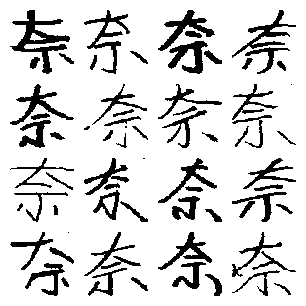 奈奈奈奈
奈奈奈奈
奈奈奈奈
奈奈奈奈